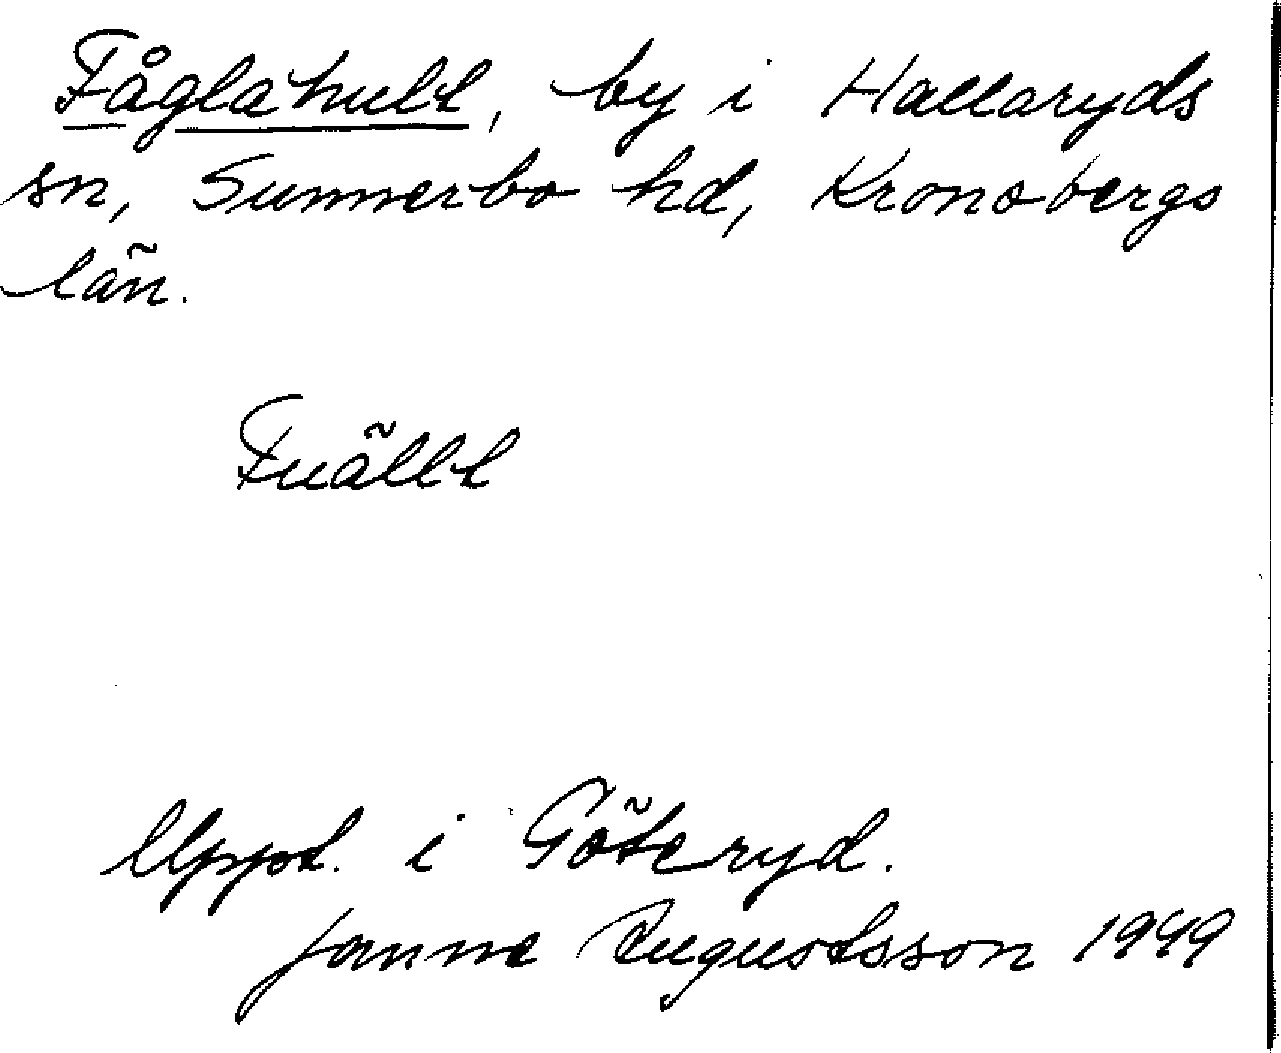 Fåglahult, by i Hallaryds
sn, Sunnerbo hd, Kronobergs
län.
Fuällt
Uppt. i Göteryd.
Janne Augustsson 1949